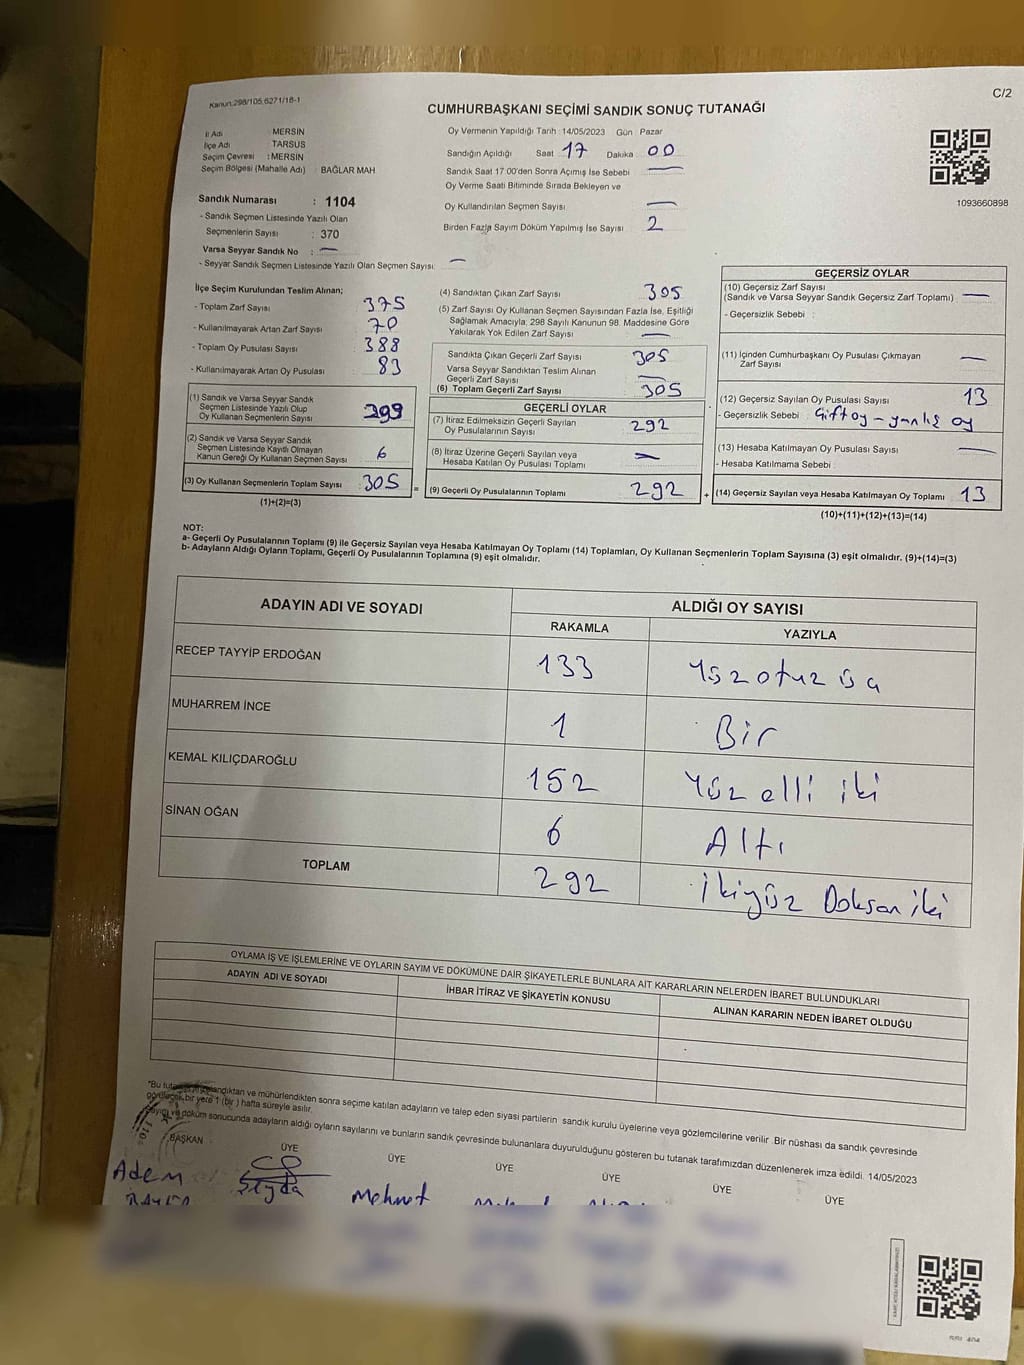 Kanun:298/105,6271/16-1
C/2
CUMHURBAŞKANI SEÇİMİ SANDIK SONUÇ TUTANAĞI
İl Adı : MERSİN
İlçe Adı : TARSUS
Seçim Çevresi : MERSİN
Seçim Bölgesi (Mahalle Adı) : BAĞLAR MAH
Sandık Numarası : 1104
- Sandık Seçmen Listesinde Yazılı Olan
Seçmenlerin Sayısı : 370
Varsa Seyyar Sandık No : —
- Seyyar Sandık Seçmen Listesinde Yazılı Olan Seçmen Sayısı —
Oy Vermenin Yapıldığı Tarih : 14/05/2023 Gün : Pazar
Sandığın Açıldığı Saat 17 Dakika 00
Sandık Saat 17.00'den Sonra Açımış İse Sebebi —
Oy Verme Saati Bitiminde Sırada Bekleyen ve
Oy Kullandırılan Seçmen Sayısı —
Birden Fazla Sayım Döküm Yapılmış İse Sayısı 2
1093660898
İlçe Seçim Kurulundan Teslim Alınan;
- Toplam Zarf Sayısı 375
- Kullanılmayarak Artan Zarf Sayısı 70
- Toplam Oy Pusulası Sayısı 388
- Kullanılmayarak Artan Oy Pusulası 83
(1) Sandık ve Varsa Seyyar Sandık
Seçmen Listesinde Yazılı Olup
Oy Kullanan Seçmenlerin Sayısı 299
(2) Sandık ve Varsa Seyyar Sandık
Seçmen Listesinde Kayıtlı Olmayan
Kanun Gereği Oy Kullanan Seçmen Sayısı 6
(3) Oy Kullanan Seçmenlerin Toplam Sayısı 305
(1)+(2)=(3)
(4) Sandıktan Çıkan Zarf Sayısı 305
(5) Zarf Sayısı Oy Kullanan Seçmen Sayısından Fazla İse, Eşitliği
Sağlamak Amacıyla; 298 Sayılı Kanunun 98. Maddesine Göre
Yakılarak Yok Edilen Zarf Sayısı —
Sandıkta Çıkan Geçerli Zarf Sayısı 305
Varsa Seyyar Sandıktan Teslim Alınan
Geçerli Zarf Sayısı —
(6) Toplam Geçerli Zarf Sayısı 305
GEÇERLİ OYLAR
(7) İtiraz Edilmeksizin Geçerli Sayılan
Oy Pusulalarının Sayısı 292
(8) İtiraz Üzerine Geçerli Sayılan veya
Hesaba Katılan Oy Pusulası Toplamı —
= (9) Geçerli Oy Pusulalarının Toplamı 292
GEÇERSİZ OYLAR
(10) Geçersiz Zarf Sayısı
(Sandık ve Varsa Seyyar Sandık Geçersiz Zarf Toplamı) —
- Geçersizlik Sebebi :
(11) İçinden Cumhurbaşkanı Oy Pusulası Çıkmayan
Zarf Sayısı —
(12) Geçersiz Sayılan Oy Pusulası Sayısı 13
- Geçersizlik Sebebi : Çift oy - yanlış oy
(13) Hesaba Katılmayan Oy Pusulası Sayısı —
- Hesaba Katılmama Sebebi :
+ (14) Geçersiz Sayılan veya Hesaba Katılmayan Oy Toplamı 13
(10)+(11)+(12)+(13)=(14)
NOT:
a- Geçerli Oy Pusulalarının Toplamı (9) ile Geçersiz Sayılan veya Hesaba Katılmayan Oy Toplamı (14) Toplamları, Oy Kullanan Seçmenlerin Toplam Sayısına (3) eşit olmalıdır. (9)+(14)=(3)
b- Adayların Aldığı Oyların Toplamı, Geçerli Oy Pusulalarının Toplamına (9) eşit olmalıdır.
ADAYIN ADI VE SOYADI
ALDIĞI OY SAYISI
RAKAMLA YAZIYLA
RECEP TAYYİP ERDOĞAN 133 Yüzotuzüç
MUHARREM İNCE 1 Bir
KEMAL KILIÇDAROĞLU 152 Yüz elli iki
SİNAN OĞAN 6 Altı
TOPLAM 292 İkiyüz Doksan iki
OYLAMA İŞ VE İŞLEMLERİNE VE OYLARIN SAYIM VE DÖKÜMÜNE DAİR ŞİKAYETLERLE BUNLARA AİT KARARLARIN NELERDEN İBARET BULUNDUKLARI
ADAYIN ADI VE SOYADI İHBAR İTİRAZ VE ŞİKAYETİN KONUSU ALINAN KARARIN NEDEN İBARET OLDUĞU
"Bu imzalandıktan ve mühürlendikten sonra seçime katılan adayların ve talep eden siyasi partilerin sandık kurulu üyelerine veya gözlemcilerine verilir. Bir nüshası da sandık çevresinde
görülecek bir yere 1 (bir ) hafta süreyle asılır.
Sayım ve döküm sonucunda adayların aldığı oyların sayılarını ve bunların sandık çevresinde bulunanlara duyurulduğunu gösteren bu tutanak tarafımızdan düzenlenerek imza edildi. 14/05/2023
BAŞKAN ÜYE ÜYE ÜYE ÜYE ÜYE ÜYE
Adem Şeyda Mehmet